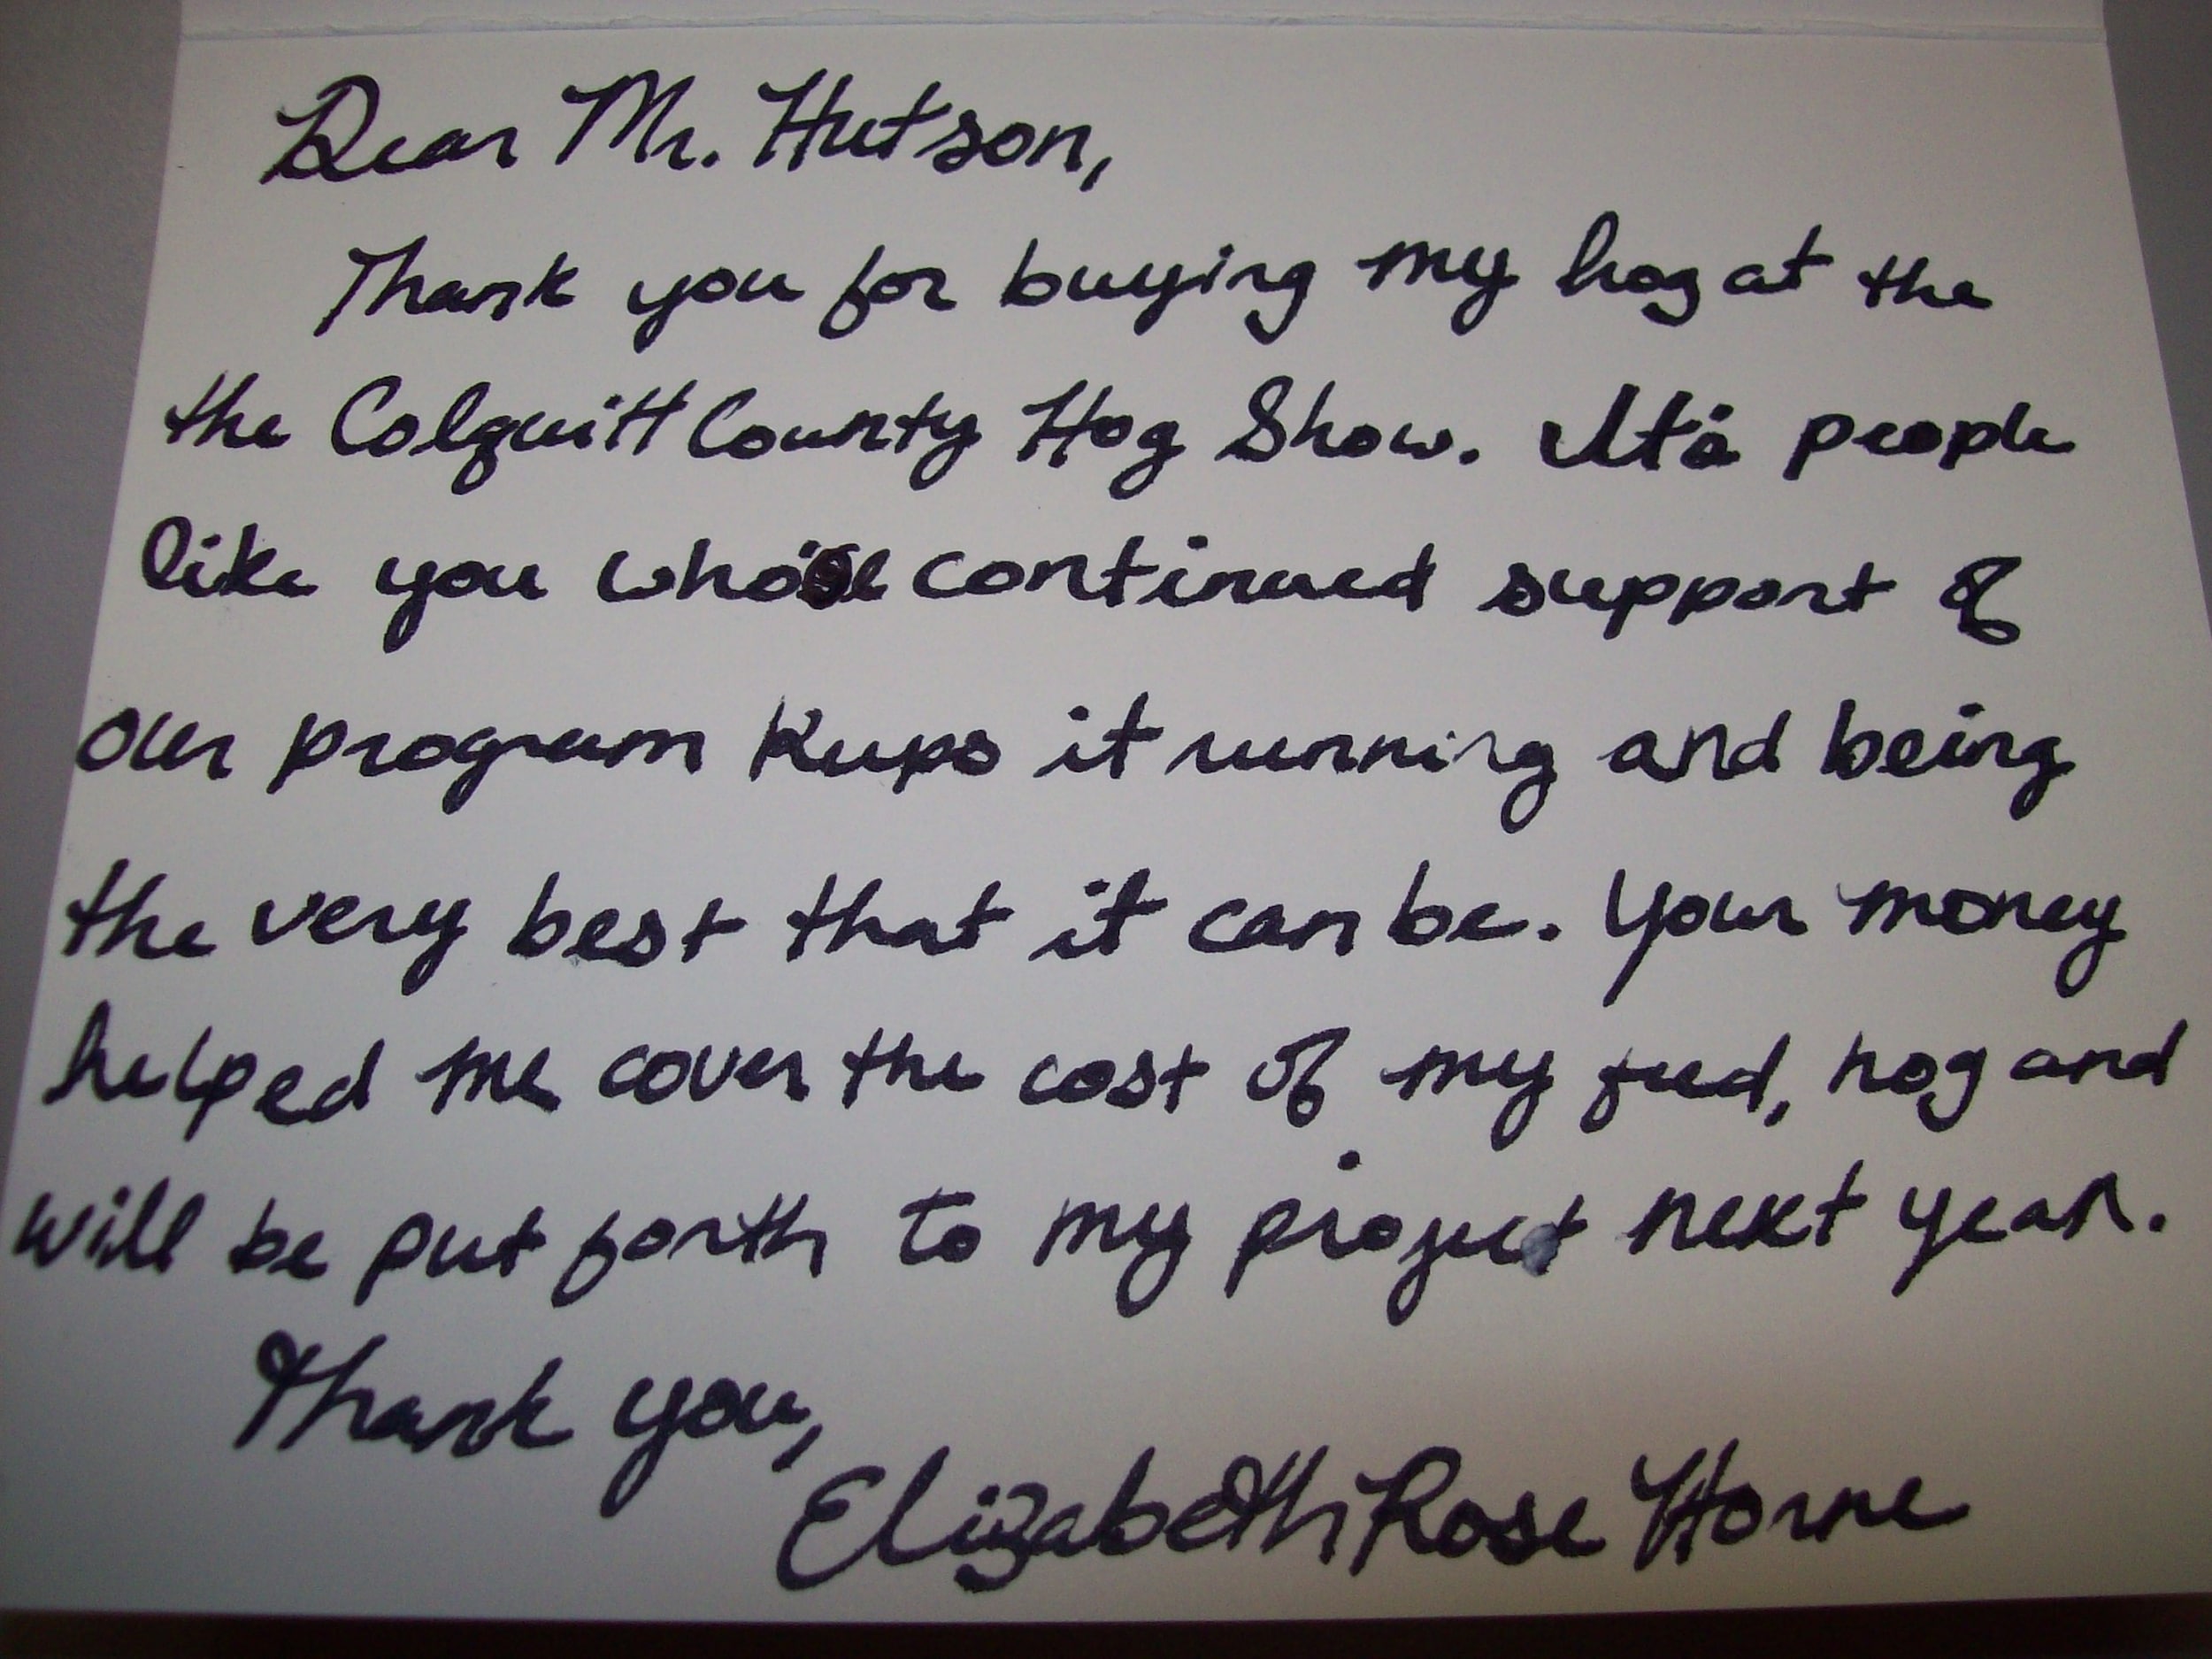 Dear Mr. Hutson,
Thank you for buying my hog at the
the Colquitt County Hog Show. It's people
like you whose continued support of
our program keeps it running and being
the very best that it can be. Your money
helped me cover the cost of my feed, hog and
will be put forth to my project next year.
Thank you,
Elizabeth Rose Horne